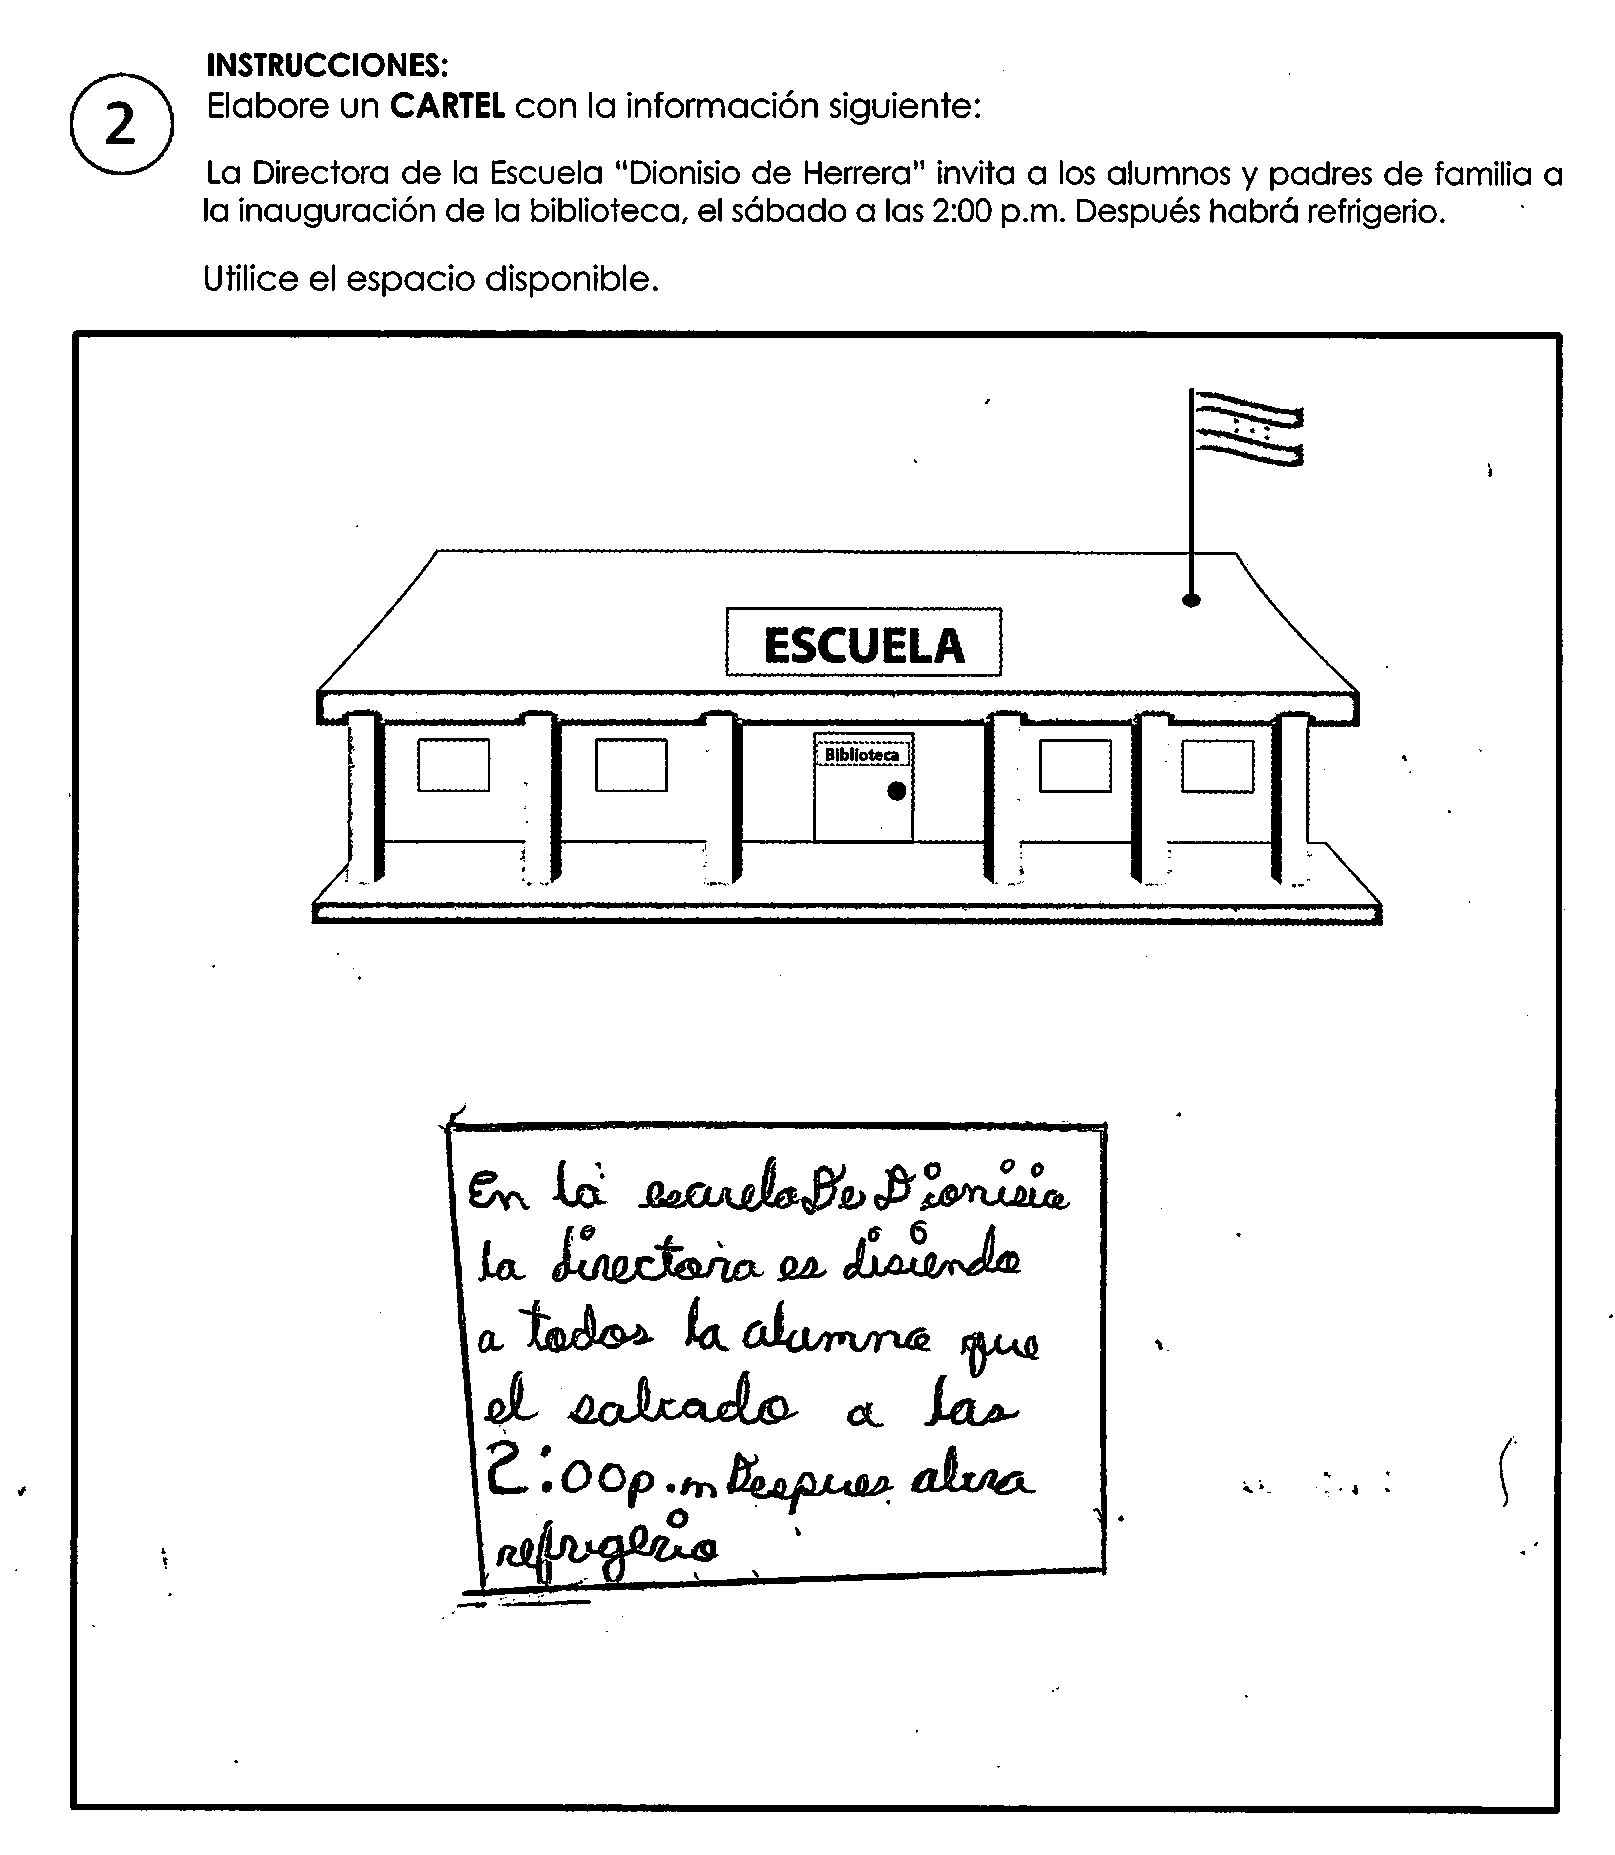 INSTRUCCIONES:
2
Elabore un CARTEL con la información siguiente:
La Directora de la Escuela "Dionisio de Herrera" invita a los alumnos y padres de familia a
la inauguración de la biblioteca, el sábado a las 2:00 p.m. Después habrá refrigerio.
Utilice el espacio disponible.
ESCUELA
Biblioteca
En la escuela De Dionisio
la directora es disiendo
a todos la alumna que
el sabado a las
2:00 p.m Despues abra
refrigerio